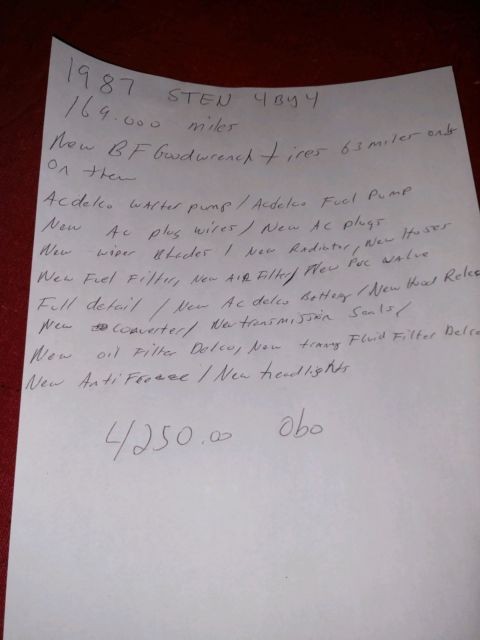 1987 STEN 4 By 4
169.000 miles
New BF Goodwrench tires 63 miles only
on them
Acdelco warter pump / Acdelco Fuel Pump
New Ac plug wires / New AC plugs
New wiper Blades / New Radiator, New Hoses
New Fuel Filter, New AIR Filter / New Pvc valve
Full detail / New Acdelco Battery / New Hood Relea
New Converter / New transmission Seals /
New oil Filter Delco, New tranny Fluid Filter Delco
New AntiFreeze / New headlights
4250.00 Obo